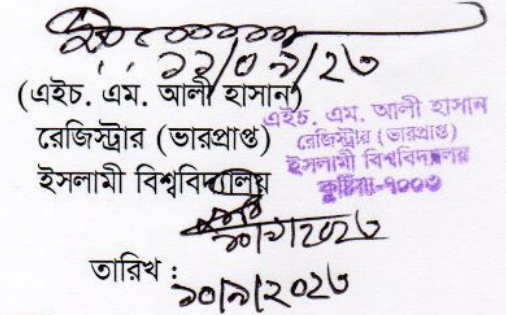 ১১/০৯/২৩
(এইচ. এম. আলী হাসান)
রেজিস্ট্রার (ভারপ্রাপ্ত)
ইসলামী বিশ্ববিদ্যালয়
এইচ. এম. আলী হাসান
রেজিস্ট্রার (ভারপ্রাপ্ত)
ইসলামী বিশ্ববিদ্যালয়
কুষ্টিয়া-৭০০৩
১০/৯/২০২৩
তারিখ : ১০/৯/২০২৩